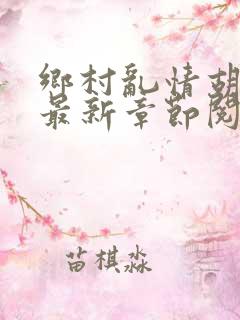 鄉村亂情胡
最新章節閱
苗棋淼